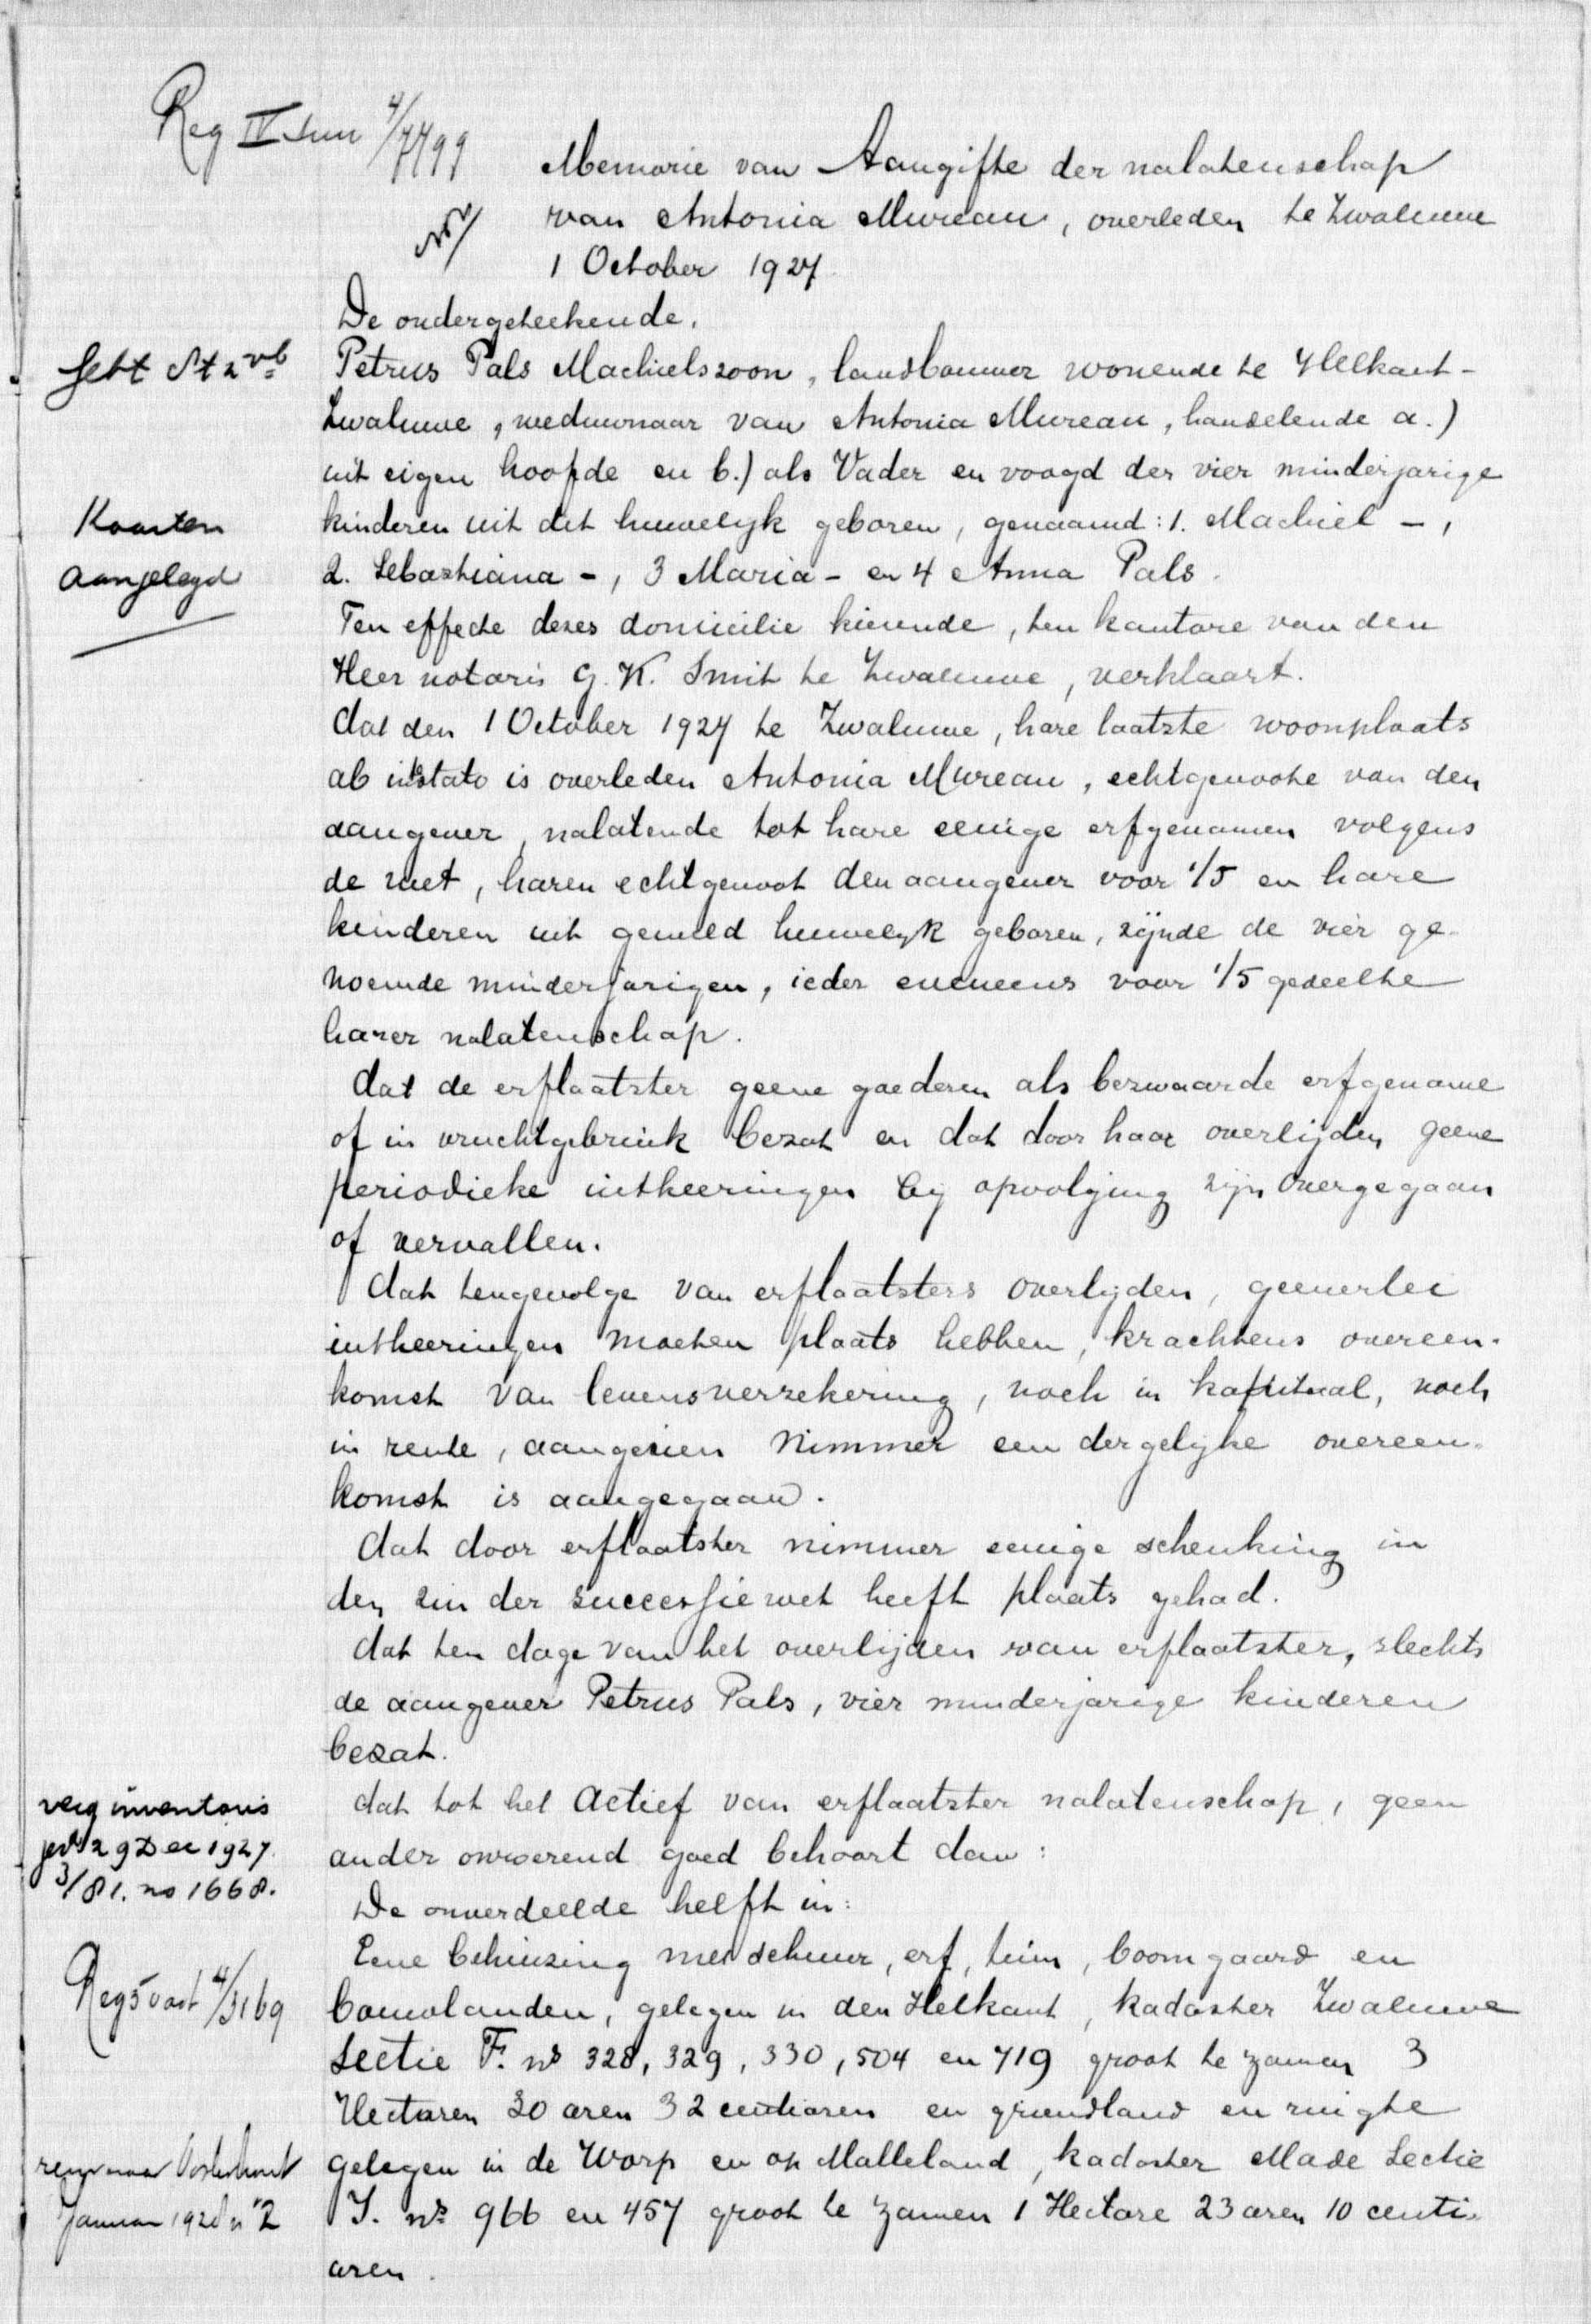 Reg IV 4/7799
Memorie van Aangifte der nalatenschap
van Antonia Mureau, overleden te Zwaluwe
1 October 1927
De ondergeteekende,
Petrus Pals Machielszoon, landbouwer wonende te Helkant-
Zwaluwe, weduwnaar van Antonia Mureau, handelende a.)
uit eigen hoofde en b.) als Vader en voogd der vier minderjarige
Kaarten
kinderen uit dit huwelijk geboren, genaamd: 1. Machiel -,
aangelegd
2. Sebastiana -, 3 Maria - en 4 Anna Pals.
Ten effecte dezes domicilie kiezende, ten kantore van den
Heer notaris G. K. Smit te Zwaluwe, verklaart.
dat den 1 October 1927 te Zwaluwe, hare laatste woonplaats
ab intstato is overleden Antonia Mureau, echtgenoote van den
aangever, nalatende tot hare eenige erfgenamen volgens
de wet, haren echtgenoot den aangever voor 1/5 en hare
kinderen uit gemeld huwelijk geboren, zijnde de vier ge-
noemde minderjarigen, ieder eveneens voor 1/5 gedeelte
harer nalatenschap.
dat de erflaatster geene goederen als bezwaarde erfgename
of in vruchtgebruik bezat en dat door haar overlijden geene
periodieke uitkeeringen bij opvolging zijn overgegaan
of vervallen.
dat tengevolge van erflaatsters overlijden, geenerlei
uitkeeringen moeten plaats hebben, krachtens overeen-
komst van levensverzekering, noch in kapitaal, noch
in rente, aangezien nimmer een dergelijke overeen-
komst is aangegaan.
dat door erflaatster nimmer eenige schenking in
den zin der successiewet heeft plaats gehad.
dat ten dage van het overlijden van erflaatster, slechts
de aangever Petrus Pals, vier minderjarige kinderen
bezat.
verg inventaris
dat tot het actief van erflaatster nalatenschap, geen
29 Dec 1927
ander onroerend goed behoort dan:
3/81. no 1668.
De onverdeelde helft in:
Eene behuizing met schuur, erf, tuin, boomgaard en
Reg 5 vast 4/3169
bouwlanden, gelegen in den Helkant, kadaster Zwaluwe
Sectie F. nos 328, 329, 330, 504 en 719 groot te zamen 3
Hectaren 30 aren 32 centiaren en griendland en ruigte
Oosterhout
gelegen in de Worp en op Malleland, kadaster Made Sectie
Januari 1928 no 2
I. nos 966 en 457 groot te zamen 1 Hectare 23 aren 10 centi-
aren.